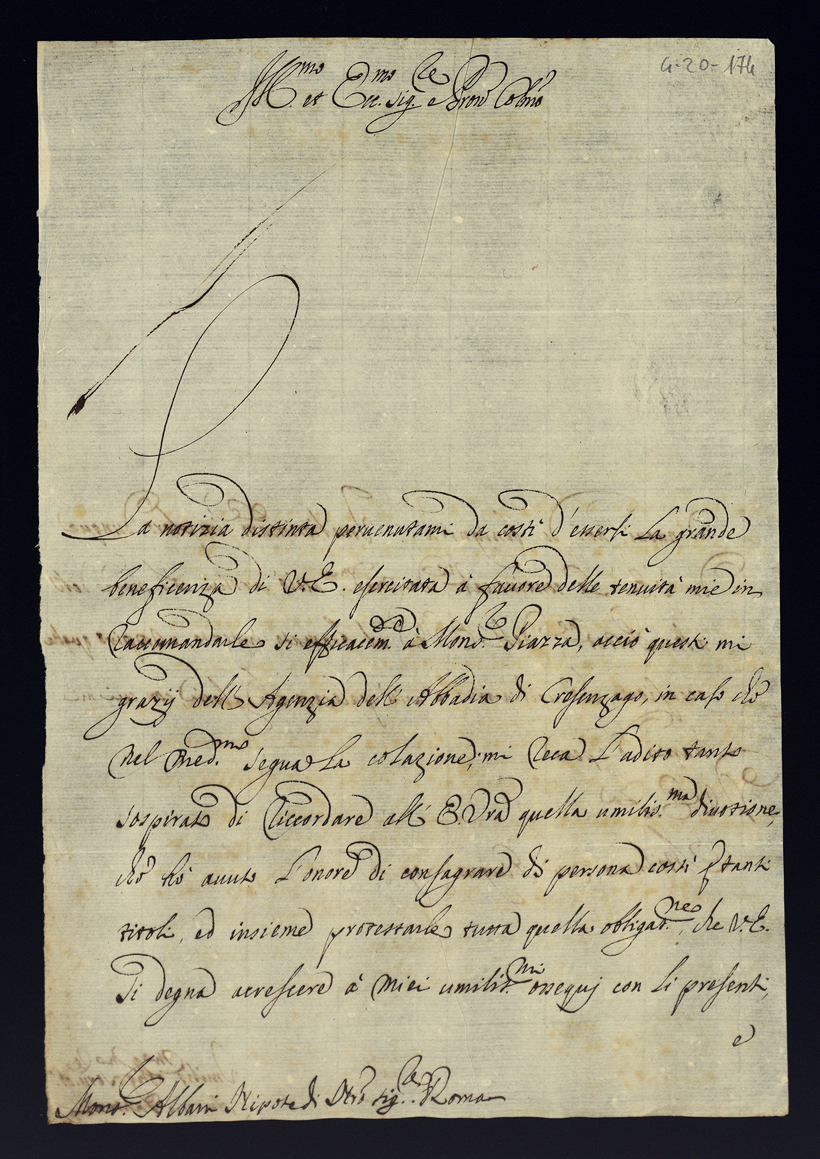 4-20-174
Ill.mo et Ecc.mo Sig.re e Pron Colmo
La notizia distinta peruenutami da costì d'essersi la grande
beneficenza di V.E. esercitata à fauore delle tenuità mie in
raccomandarle si efficacem. à Mons.r Piazza, acciò questi mi
grazij dell'Agenzia dell'Abbadia di Cresenzago, in caso chè
nel med.mo segua la colazione; mi reca l'adito tanto
sospirato di riccordare all'E. Vra quella umilis.ma diuozione,
chè hò auuto l'onore di consagrare di persona costì p tanti
titoli, ed insieme protestarle tutta quella obligat.ne, che V.E.
si degna accrescere à miei umilis.mi ossequij con li presenti,
e
Mons.r Albani Nipote di Nro Sig.re Roma